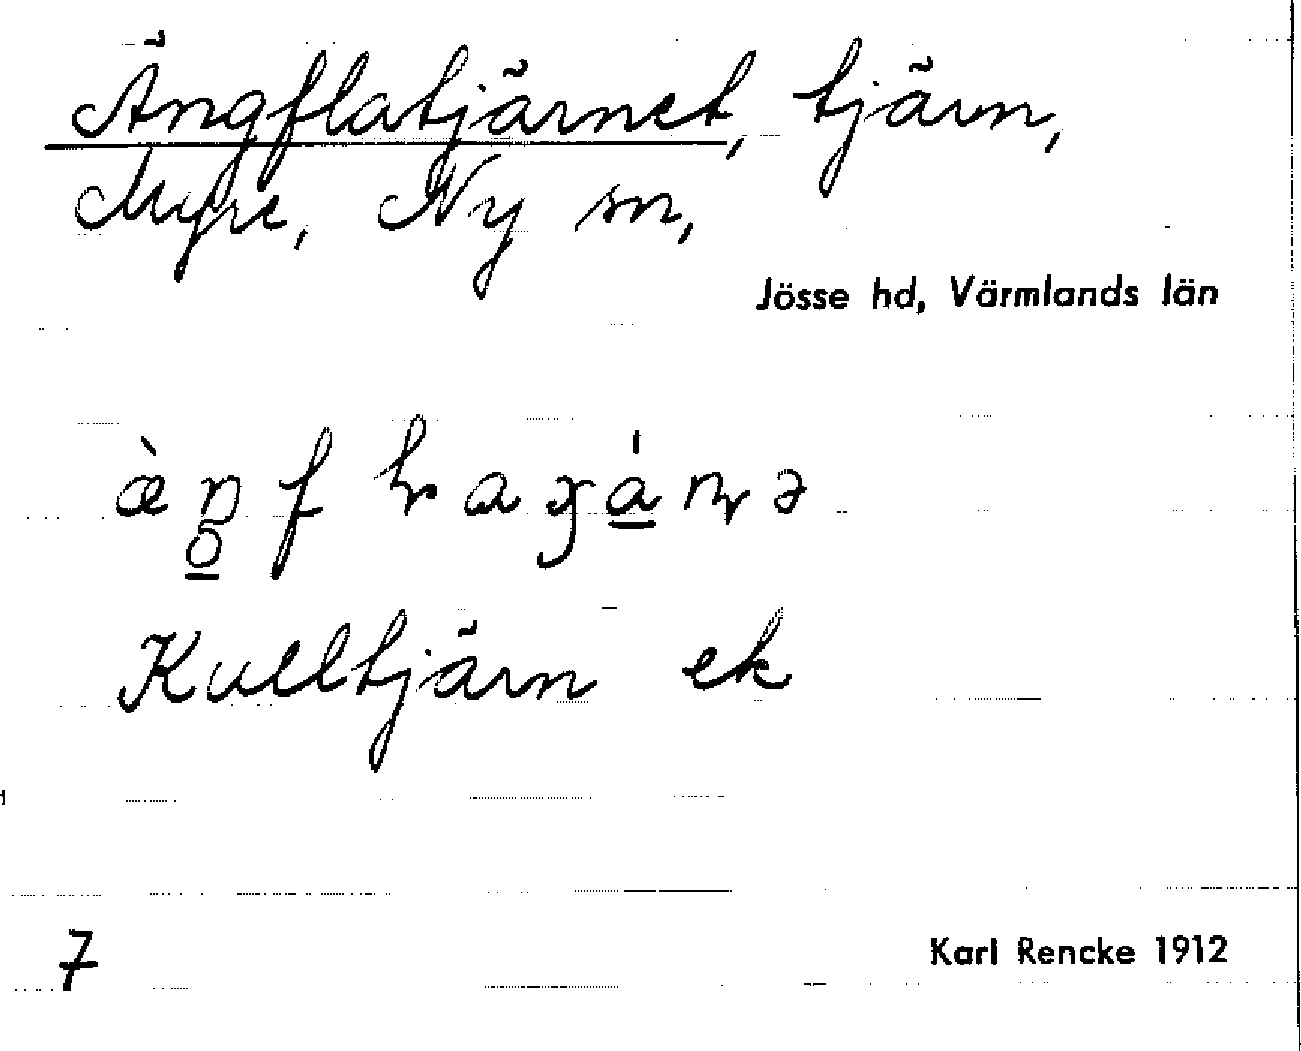 Ängflatjärnet, tjärn,
Myre, Ny sn,
Jösse hd, Värmlands län
Kulltjärn ek
7
Karl Rencke 1912